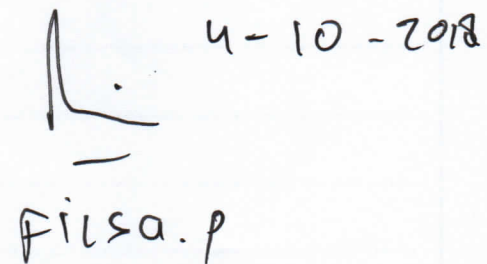 4-10-2018
Filsa.P